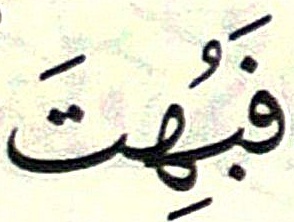 فَبُهِتَ